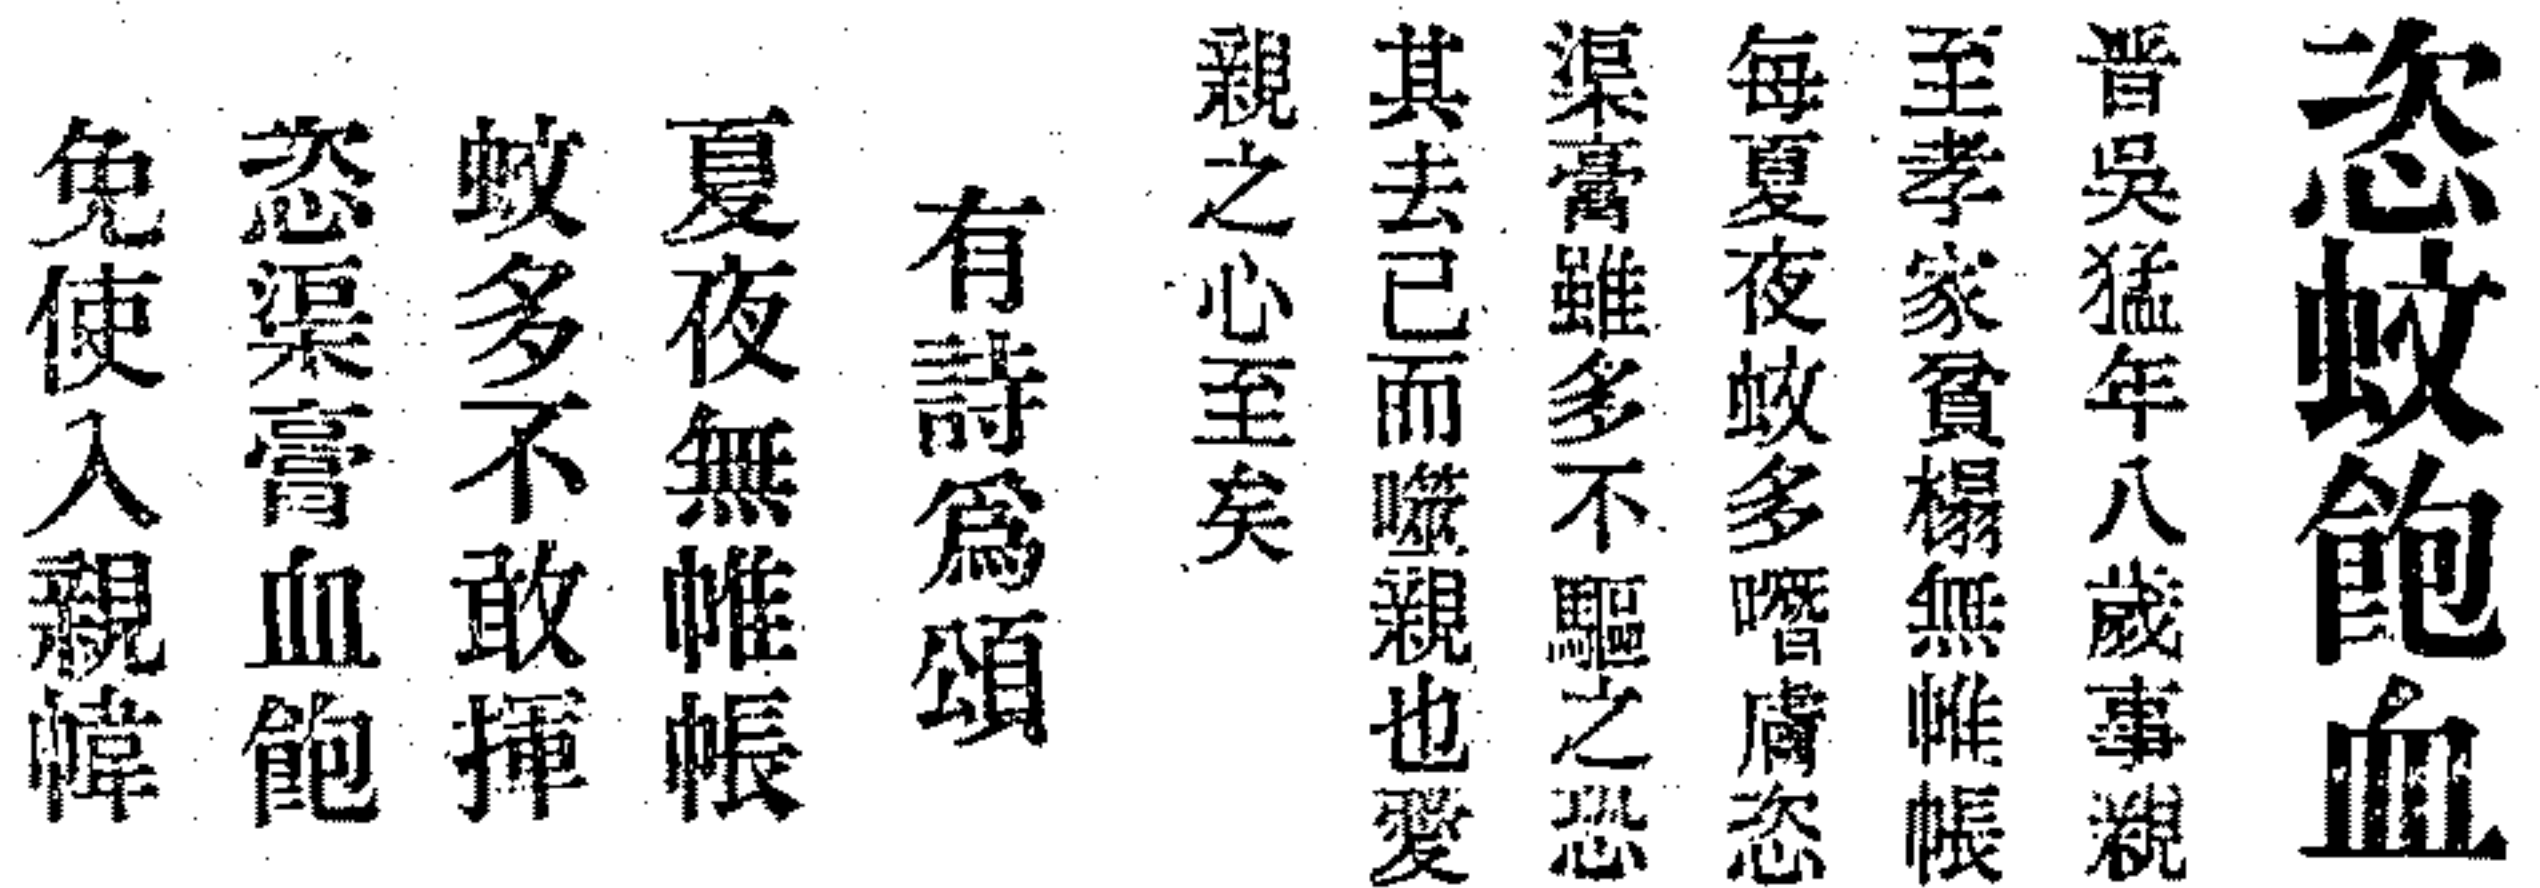 恣蚊飽血
晋吳猛年八歲事親
至孝家貧榻無帷帳
每夏夜蚊多噆膚恣
渠膏雖多不驅之恐
其去己而噬親也愛
親之心至矣
有詩爲頌
夏夜無帷帳
蚊多不敢揮
恣渠膏血飽
免使入親幃